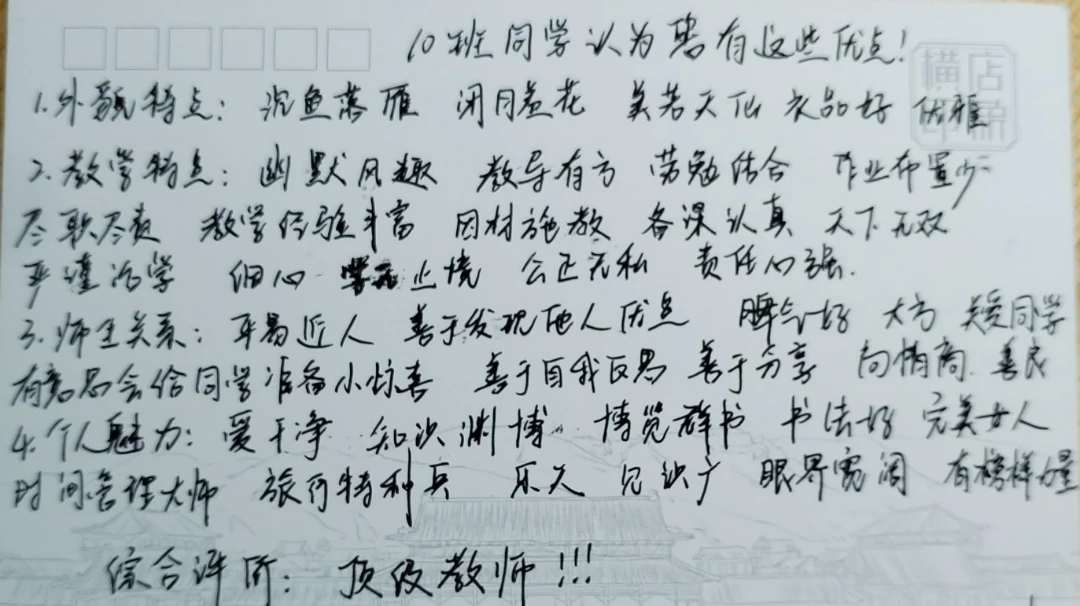 10班同学认为您有这些优点！
横店印象
1.外貌特点：沉鱼落雁 闭月羞花 美若天仙 衣品好 优雅
2.教学特点：幽默风趣 教导有方 劳勉结合 作业布置少
尽职尽责 教学经验丰富 因材施教 备课认真 天下无双
严谨治学 细心 学无止境 公正无私 责任心强.
3.师生关系：平易近人 善于发现他人优点 脾气好 大方 关爱同学
有意思会给同学准备小惊喜 善于自我反思 善于分享 高情商 善良
4.个人魅力：爱干净 知识渊博 博览群书 书法好 完美女人
时间管理大师 旅行特种兵 乐天 见识广 眼界宽阔 有榜样力量
综合评价：顶级教师!!!